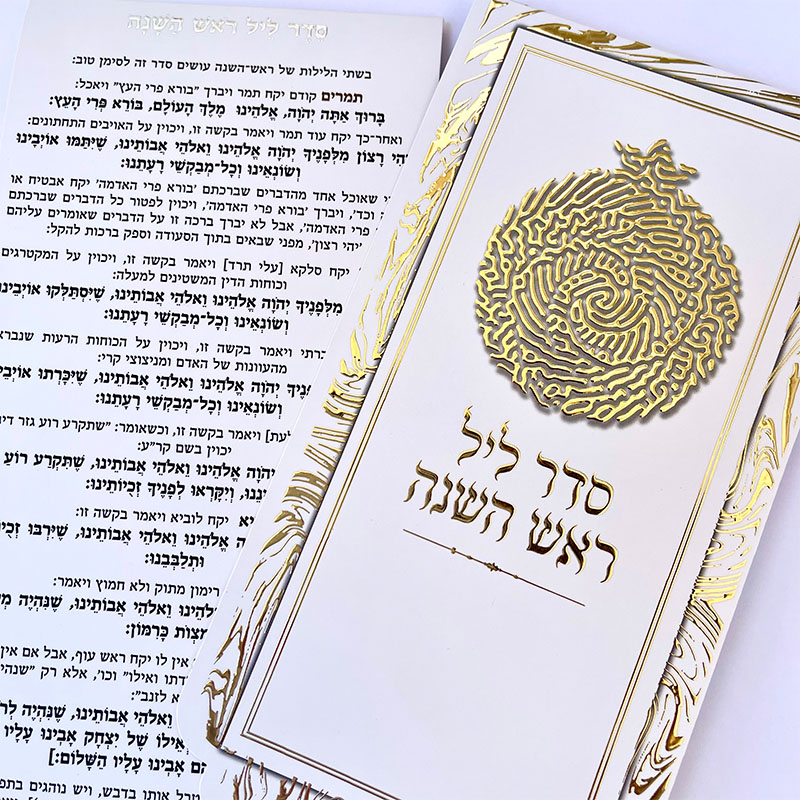 סֵדֶר לֵיל רֹאשׁ הַשָּׁנָה
בשתי הלילות של ראש־השנה עושים סדר זה לסימן טוב:
תמרים קודם יקח תמר ויברך "בורא פרי העץ" ויאכל:
בָּרוּךְ אַתָּה יְהֹוָה, אֱלֹהֵינוּ מֶלֶךְ הָעוֹלָם, בּוֹרֵא פְּרִי הָעֵץ:
ואחר־כך יקח עוד תמר ויאמר בקשה זו, ויכוין על האויבים התחתונים:
רָצוֹן מִלְּפָנֶיךָ יְהֹוָה אֱלֹהֵינוּ וֵאלֹהֵי אֲבוֹתֵינוּ, שֶׁיִּתַּמּוּ אוֹיְבֵינוּ
וְשׂוֹנְאֵינוּ וְכָל־מְבַקְשֵׁי רָעָתֵנוּ:
שאוכל אחד מהדברים שברכתם 'בורא פרי האדמה' יקח אבטיח או
וכד', ויברך 'בורא פרי האדמה', ויכוין לפטור כל הדברים שברכתם
פרי האדמה', אבל לא יברך ברכה זו על הדברים שאומרים עליהם
'יהי רצון', מפני שבאים בתוך הסעודה וספק ברכות להקל:
יקח סלקא [עלי תרד] ויאמר בקשה זו, ויכוין על המקטרגים
וכוחות הדין המשטינים למעלה:
מִלְּפָנֶיךָ יְהֹוָה אֱלֹהֵינוּ וֵאלֹהֵי אֲבוֹתֵינוּ, שֶׁיִּסְתַּלְּקוּ אוֹיְבֵינוּ
וְשׂוֹנְאֵינוּ וְכָל־מְבַקְשֵׁי רָעָתֵנוּ:
ויאמר בקשה זו, ויכוין על הכוחות הרעות שנבראו
מהעוונות של האדם ומניצוצי קרי:
יְהֹוָה אֱלֹהֵינוּ וֵאלֹהֵי אֲבוֹתֵינוּ, שֶׁיִּכָּרְתוּ
וְשׂוֹנְאֵינוּ וְכָל־מְבַקְשֵׁי רָעָתֵנוּ:
ויאמר בקשה זו, וכשאומר: "שתקרע רוע גזר
יכוין בשם קר"ע:
יְהֹוָה אֱלֹהֵינוּ וֵאלֹהֵי אֲבוֹתֵינוּ, שֶׁתִּקְרַע רוֹעַ
וְיִקָּרְאוּ לְפָנֶיךָ זְכִיּוֹתֵינוּ:
יקח לוביא ויאמר בקשה זו:
אֱלֹהֵינוּ וֵאלֹהֵי אֲבוֹתֵינוּ, שֶׁיִּרְבּוּ
וּתְלַבְּבֵנוּ:
רימון מתוק ולא חמוץ ויאמר:
אֱלֹהֵינוּ וֵאלֹהֵי אֲבוֹתֵינוּ, שֶׁנִּהְיֶה
כָּרִמּוֹן:
אין לו יקח ראש עוף, אבל אם אין
ואילו" וכו', אלא רק
לזנב":
וֵאלֹהֵי אֲבוֹתֵינוּ, שֶׁנִּהְיֶה
אֵילוֹ שֶׁל יִצְחָק אָבִינוּ עָלָיו
אָבִינוּ עָלָיו הַשָּׁלוֹם:]
אותו בדבש, ויש נוהגים
סדר ליל
ראש השנה